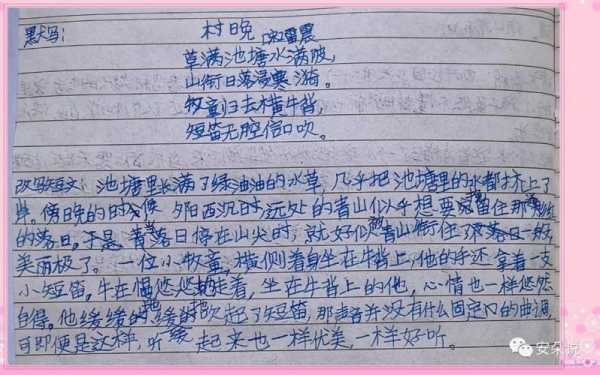 默写:
村晚
[宋]雷震
草满池塘水满陂,
山衔日落浸寒漪。
牧童归去横牛背,
短笛无腔信口吹。
改写短文:池塘里长满了绿油油的水草,几乎把池塘里的水都挤上了
岸。傍晚的时候夕阳西沉时,远处的青山似乎想要留住那
的落日。于是,当落日停在山尖时,就好似被青山衔住了落日一般
美丽极了。一位小牧童,横侧着身坐在牛背上,他的手还拿着一支
小短笛,牛在慢悠悠地走着,坐在牛背上的他,心情也一样悠然
自得。他缓缓地吹起了短笛,那声音并没有什么固定的曲调,
可即便是这样,听起来也一样优美,一样好听。
安朵说